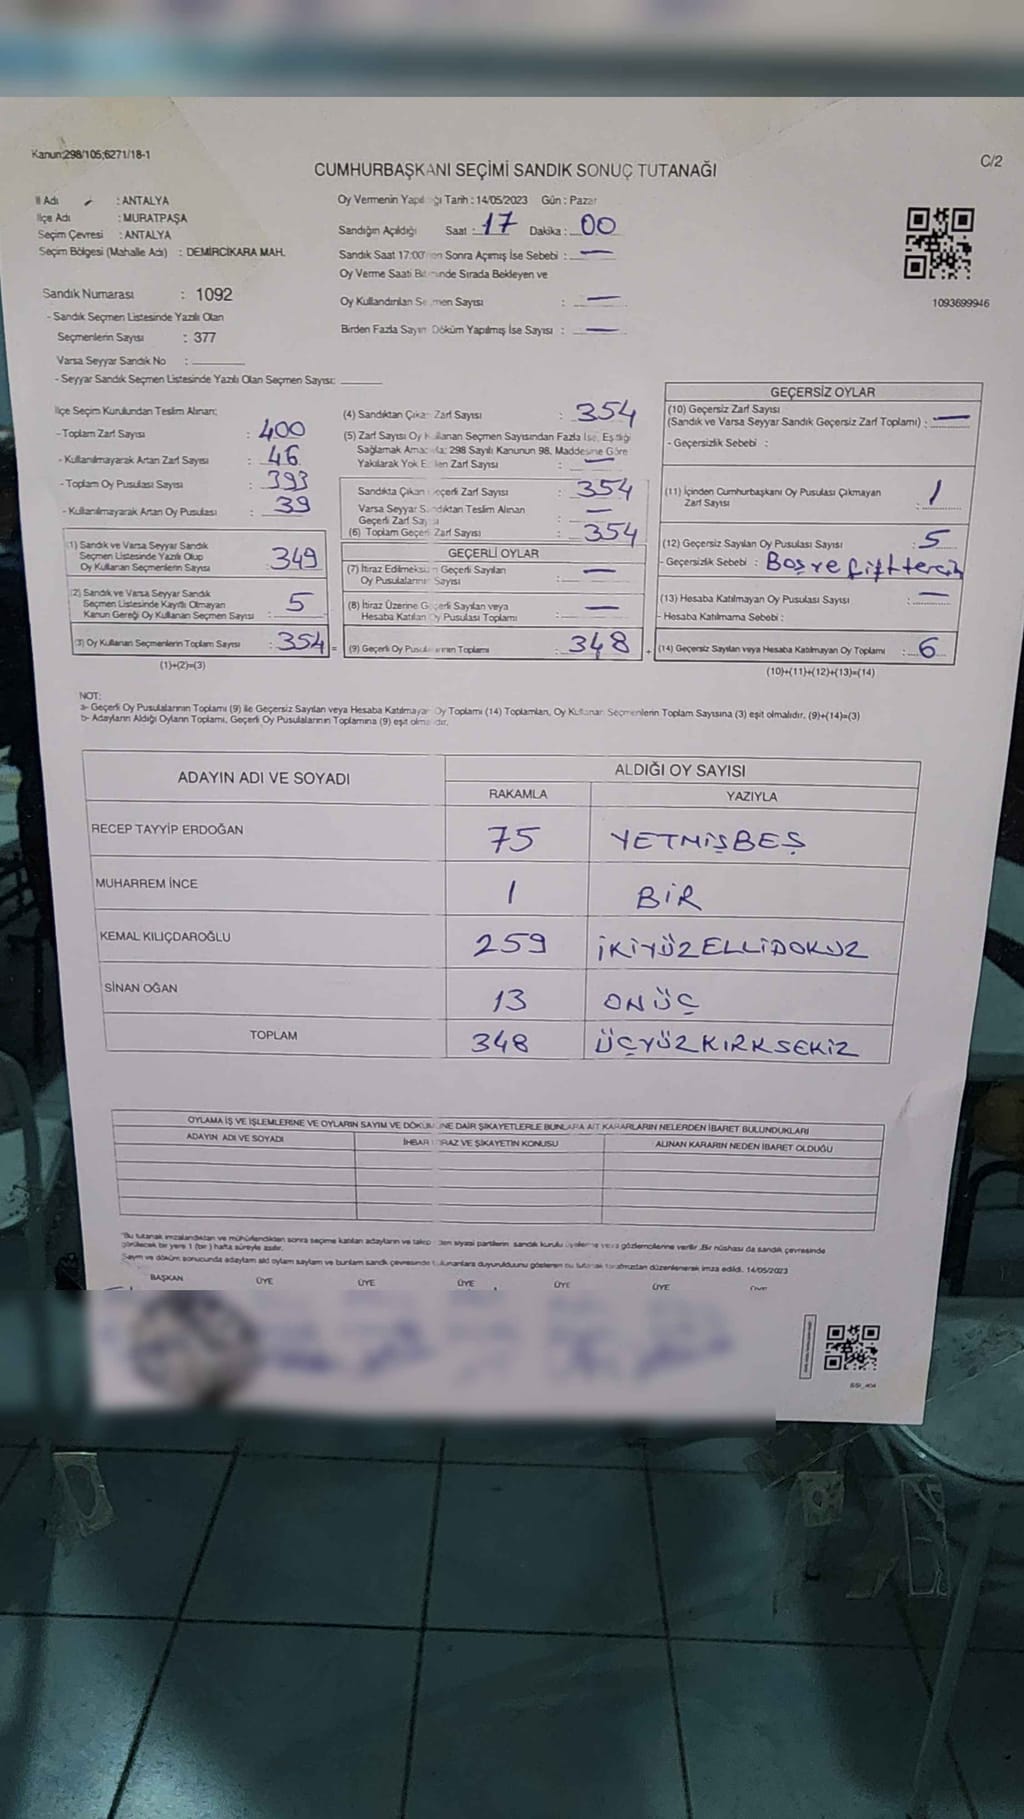 Kanun:298/105;6271/18-1
C/2
CUMHURBAŞKANI SEÇİMİ SANDIK SONUÇ TUTANAĞI
İl Adı : ANTALYA
İlçe Adı : MURATPAŞA
Seçim Çevresi : ANTALYA
Seçim Bölgesi (Mahalle Adı) : DEMİRCİKARA MAH.
Sandık Numarası : 1092
- Sandık Seçmen Listesinde Yazılı Olan
Seçmenlerin Sayısı : 377
Varsa Seyyar Sandık No :
- Seyyar Sandık Seçmen Listesinde Yazılı Olan Seçmen Sayısı:
Oy Vermenin Tarih : 14/05/2023 Gün : Pazar
Sandığın Açıldığı Saat : 17 Dakika : 00
Sandık Saat 17:00 Sonra Açımış İse Sebebi : —
Oy Verme Saati Sırada Bekleyen ve
Oy Kullandırılan Sayısı : —
Birden Fazla Sayım Döküm Yapılmış İse Sayısı : —
1093699946
İlçe Seçim Kurulundan Teslim Alınan:
-Toplam Zarf Sayısı : 400
- Kullanılmayarak Artan Zarf Sayısı : 46
- Toplam Oy Pusulası Sayısı : 393
- Kullanılmayarak Artan Oy Pusulası : 39
(1) Sandık ve Varsa Seyyar Sandık
Seçmen Listesinde Yazılı Olup
Oy Kullanan Seçmenlerin Sayısı 349
(2) Sandık ve Varsa Seyyar Sandık
Seçmen Listesinde Kayıtlı Olmayan
Kanun Gereği Oy Kullanan Seçmen Sayısı : 5
(3) Oy Kullanan Seçmenlerin Toplam Sayısı : 354 =
(1)+(2)=(3)
(4) Sandıktan Çıkan Zarf Sayısı : 354
(5) Zarf Sayısı Oy Kullanan Seçmen Sayısından Fazla İse, Eşitliği
Sağlamak 298 Sayılı Kanunun 98. Maddesine Göre
Yakılarak Yok Zarf Sayısı : —
Sandıkta Çıkan Geçerli Zarf Sayısı : 354
Varsa Seyyar Sandıktan Teslim Alınan
Geçerli Zarf Sayısı : —
(6) Toplam Geçerli Zarf Sayısı : 354
GEÇERLİ OYLAR
(7) İtiraz Edilmeksizin Geçerli Sayılan
Oy Pusulalarının Sayısı : —
(8) İtiraz Üzerine Geçerli Sayılan veya
Hesaba Katılan Oy Pusulası Toplamı : —
(9) Geçerli Oy Pusulalarının Toplamı : 348 +
GEÇERSİZ OYLAR
(10) Geçersiz Zarf Sayısı
(Sandık ve Varsa Seyyar Sandık Geçersiz Zarf Toplamı) : —
- Geçersizlik Sebebi :
(11) İçinden Cumhurbaşkanı Oy Pusulası Çıkmayan
Zarf Sayısı : 1
(12) Geçersiz Sayılan Oy Pusulası Sayısı : 5
- Geçersizlik Sebebi : Boş ve çift tercih
(13) Hesaba Katılmayan Oy Pusulası Sayısı : —
- Hesaba Katılmama Sebebi :
(14) Geçersiz Sayılan veya Hesaba Katılmayan Oy Toplamı : 6
(10)+(11)+(12)+(13)=(14)
NOT:
a- Geçerli Oy Pusulalarının Toplamı (9) ile Geçersiz Sayılan veya Hesaba Katılmayan Oy Toplamı (14) Toplamları, Oy Kullanan Seçmenlerin Toplam Sayısına (3) eşit olmalıdır. (9)+(14)=(3)
b- Adayların Aldığı Oyların Toplamı, Geçerli Oy Pusulalarının Toplamına (9) eşit olmalıdır.
ADAYIN ADI VE SOYADI ALDIĞI OY SAYISI
RAKAMLA YAZIYLA
RECEP TAYYİP ERDOĞAN 75 YETMİŞBEŞ
MUHARREM İNCE 1 BİR
KEMAL KILIÇDAROĞLU 259 İKİYÜZELLİDOKUZ
SİNAN OĞAN 13 ONÜÇ
TOPLAM 348 ÜÇYÜZKIRKSEKİZ
OYLAMA İŞ VE İŞLEMLERİNE VE OYLARIN SAYIM VE DÖKÜMÜNE DAİR ŞİKAYETLERLE BUNLARA AİT KARARLARIN NELERDEN İBARET BULUNDUKLARI
ADAYIN ADI VE SOYADI İHBAR İTİRAZ VE ŞİKAYETİN KONUSU ALINAN KARARIN NEDEN İBARET OLDUĞU
"Bu tutanak imzalandıktan ve mühürlendikten sonra seçime katılan adayların ve siyasi partilerin sandık kurulu üyelerine veya gözlemcilerine verilir. Bir nüshası da sandık çevresinde
görülecek bir yere 1 (bir) hafta süreyle asılır.
Sayım ve döküm sonucunda adayların aldı oyların sayıları ve bunların sandık çevresinde bulunanlara duyurulduunu gösteren bu tutanak tarafımızdan düzenlenerek imza edildi. 14/05/2023
BAŞKAN ÜYE ÜYE ÜYE ÜYE ÜYE